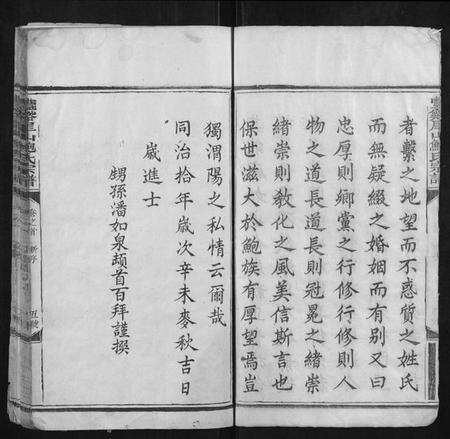 者繫之地望而不惑質之姓氏
而無疑綴之婚姻而有別又曰
忠厚則鄉黨之行修行修則人
物之道長道長則冠冕之緒崇
緒崇則敎化之風美信斯言也
保世滋大於鮑族有厚望焉豈
獨渭陽之私情云爾哉
同治拾年歲次辛未麥秋吉日
歲進士
甥孫潘如泉頓首百拜謹撰